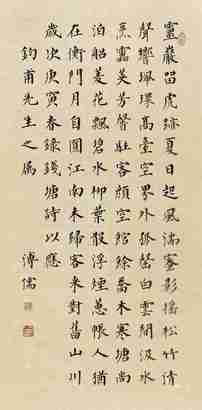 靈巖留虎跡夏日起風影搖松竹清
聲響珮環高臺空界外孤磬白雲間汲水
芳馨駐客顏空館餘喬木寒塘尚
泊船菱花飄碧水柳葉散浮煙蕙帳人猶
在衡門月自圓江南未歸客來對舊山川
歲次庚寅春錄錢塘詩以應
鈞甫先生之屬
溥儒